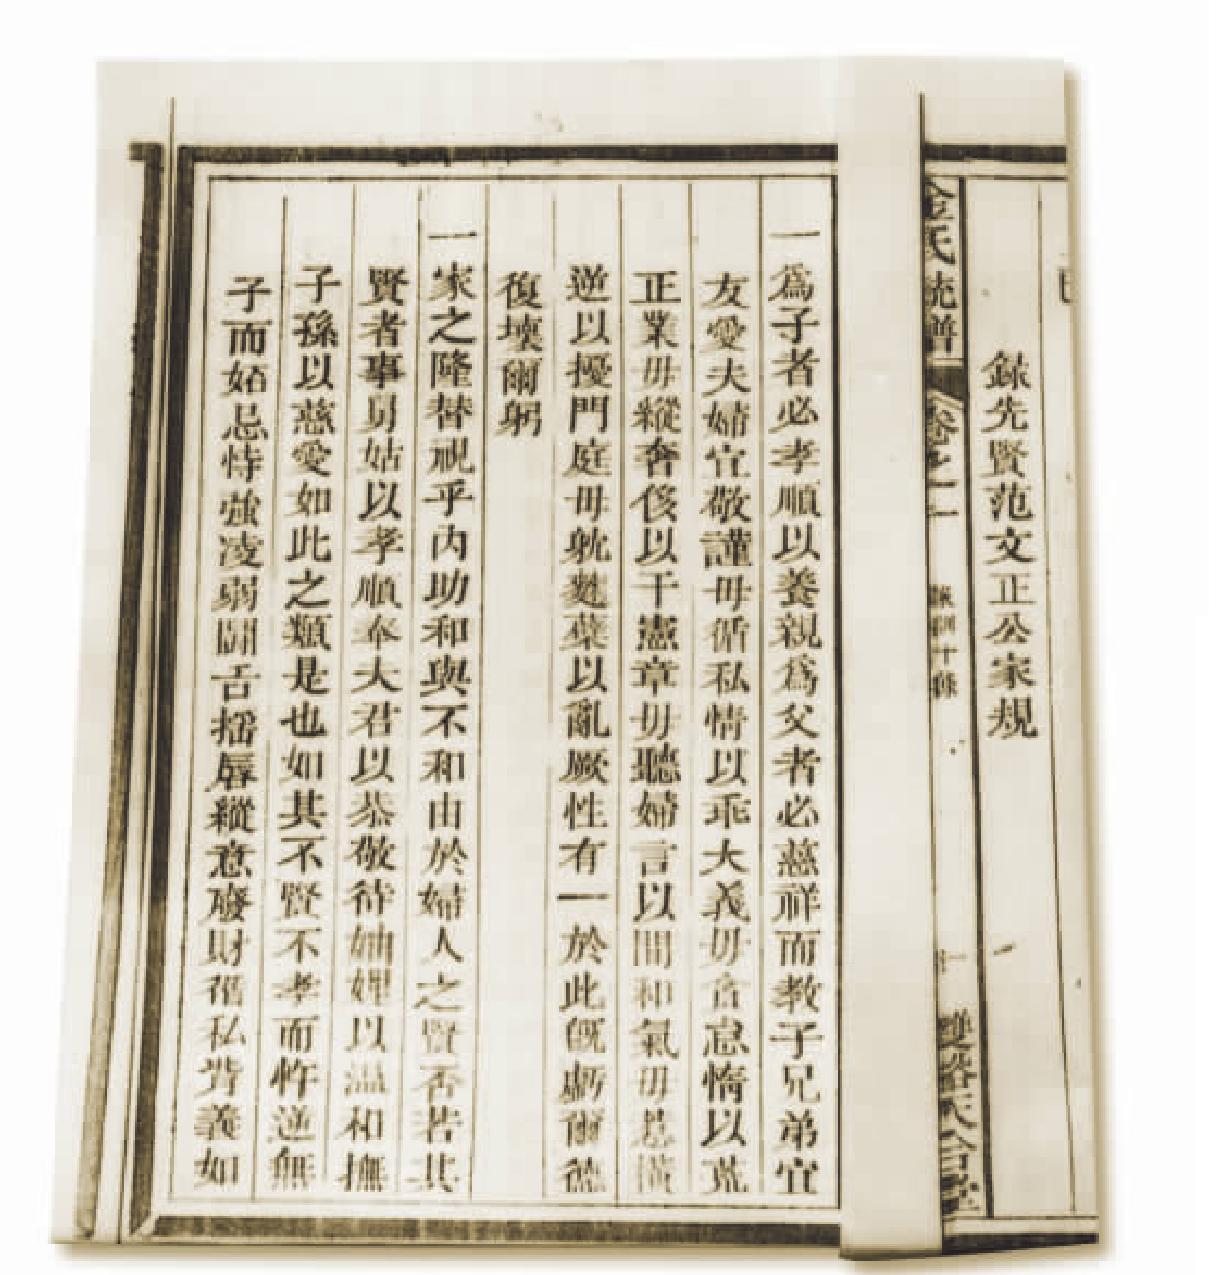 錄先賢范文正公家規
金氏統譜
卷之一
十條
雙谿天合堂
一爲子者必孝順以養親爲父者必慈祥而教子兄弟宜
友愛夫婦宜敬謹毋循私情以乖大義毋怠惰以荒
正業毋縱奢侈以干憲章毋聽婦言以間和氣毋惹橫
逆以擾門庭毋躭麴蘗以亂厥性有一於此既虧爾德
復壞爾躬
一家之隆替視乎内助和與不和由於婦人之賢否若其
賢者事舅姑以孝順奉大君以恭敬待妯娌以温和撫
子孫以慈愛如此之類是也如其不賢不孝而忤逆無
子而妬忌恃強凌弱鬭舌搖唇縱意廢財私背義如